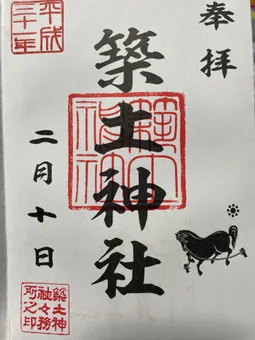 奉拝
築土神社
平成
三十一年
二月十日
築土神
社々務
所之印